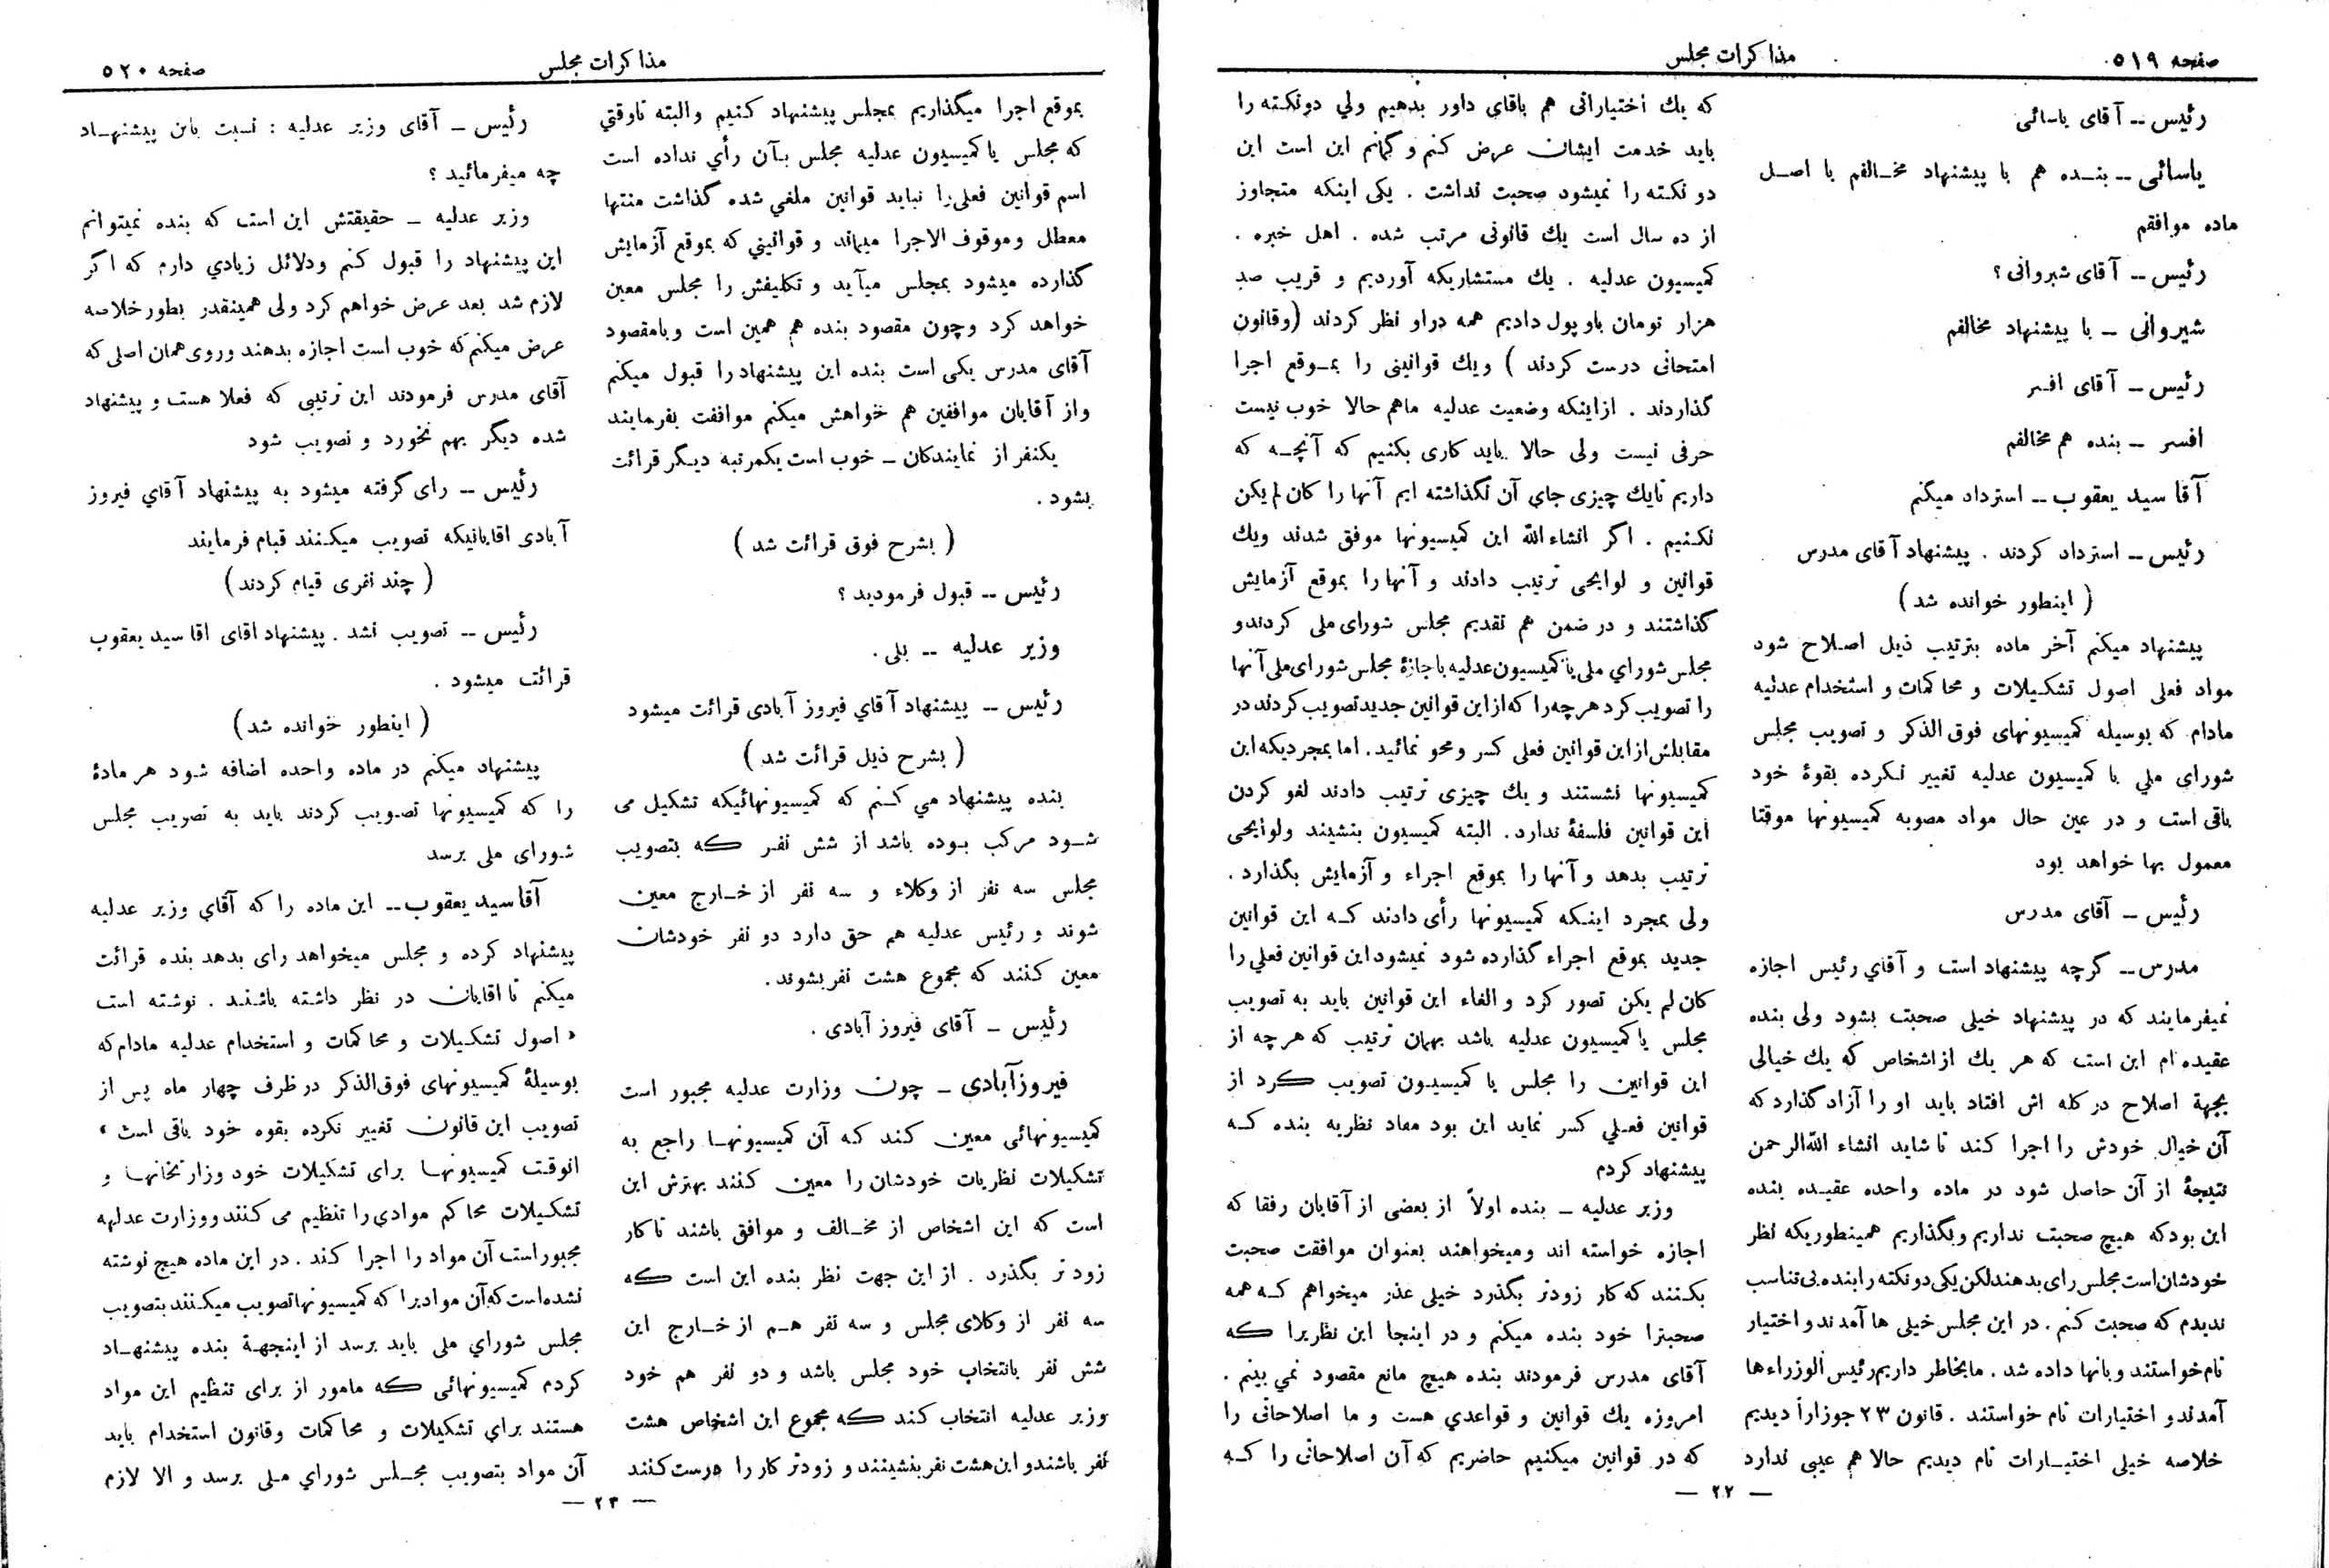 صفحه ۵۱۹
مذاکرات مجلس
رئیس -- آقای یاسائی
یاسائی -- بنده هم با پیشنهاد مخالفم با اصل
ماده موافقم
رئیس -- آقای شیروانی ؟
شیروانی - با پیشنهاد مخالفم
رئیس - آقای افسر
افسر -- بنده هم مخالفم
آقا سید یعقوب -- استرداد میکنم
رئیس -- استرداد کردند . پیشنهاد آقای مدرس
( اینطور خوانده شد )
پیشنهاد میکنم آخر ماده بترتیب ذیل اصلاح شود
مواد فعلی اصول تشکیلات و محاکمات و استخدام عدلیه
مادام که بوسیله کمیسیونهای فوق الذکر و تصویب مجلس
شورای ملی یا کمیسیون عدلیه تغییر نکرده بقوۀ خود
باقی است و در عین حال مواد مصوبه کمیسیونها موقتا
معمول بها خواهد بود
رئیس - آقای مدرس
مدرس -- گرچه پیشنهاد است و آقای رئیس اجازه
نمیفرمایند که در پیشنهاد خیلی صحبت بشود ولی بنده
عقیده ام این است که هر یك از اشخاص که یك خیالی
بجهة اصلاح در کله اش افتاد باید او را آزاد گذارد که
آن خیال خودش را اجرا کند تا شاید انشاء الله الرحمن
نتیجۀ از آن حاصل شود در ماده واحده عقیده بنده
این بود که هیچ صحبت نداریم و بگذاریم همینطوریکه نظر
خودشان است مجلس رای بدهند لکن یکی دو نکته را بنده بی تناسب
ندیدم که صحبت کنم . در این مجلس خیلی ها آمدند و اختیار
تام خواستند و بآنها داده شد . ما بخاطر داریم رئیس الوزراءها
آمدند و اختیارات تام خواستند . قانون ۲۳ جوزا را دیدیم
خلاصه خیلی اختیارات تام دیدیم حالا هم عیبی ندارد
که یك اختیاراتی هم باقای داور بدهیم ولی دو نکته را
باید خدمت ایشان عرض کنم و گمانم این است این
دو نکته را نمیشود صحبت نداشت . یکی اینکه متجاوز
از ده سال است یك قانونی مرتب شده . اهل خبره .
کمیسیون عدلیه . یك مستشاریکه آوردیم و قریب صد
هزار تومان باو پول دادیم همه در او نظر کردند ( وقانون
امتحانی درست کردند ) ویك قوانینی را بموقع اجرا
گذاردند . از اینکه وضعیت عدلیه ما هم حالا خوب نیست
حرفی نیست ولی حالا باید کاری بکنیم که آنچه که
داریم تا یك چیزی جای آن نگذاشته ایم آنها را کان لم یکن
نکنیم . اگر انشاء الله این کمیسیونها موفق شدند ویك
قوانین و لوایحی ترتیب دادند و آنها را بموقع آزمایش
گذاشتند و در ضمن هم تقدیم مجلس شورای ملی کردند و
مجلس شورای ملی یا کمیسیون عدلیه با جازۀ مجلس شورای ملی آنها
را تصویب کرد هر چه را که از این قوانین جدید تصویب کردند در
مقابلش از این قوانین فعلی کسر و محو نمائید . اما بمجردیکه این
کمیسیونها نشستند و یك چیزی ترتیب دادند لغو کردن
این قوانین فلسفۀ ندارد . البته کمیسیون بنشیند ولوایحی
ترتیب بدهد و آنها را بموقع اجراء و آزمایش بگذارد .
ولی بمجرد اینکه کمیسیونها رأی دادند که این قوانین
جدید بموقع اجراء گذارده شود نمیشود این قوانین فعلی را
کان لم یکن تصور کرد و الغاء این قوانین باید به تصویب
مجلس یا کمیسیون عدلیه باشد بهمان ترتیب که هر چه از
این قوانین را مجلس یا کمیسیون تصویب کرد از
قوانین فعلی کسر نماید این بود مفاد نظریه بنده که
پیشنهاد کردم
وزیر عدلیه - بنده اولاً از بعضی از آقایان رفقا که
اجازه خواسته اند ومیخواهند بعنوان موافقت صحبت
بکنند که کار زودتر بگذرد خیلی عذر میخواهم که همه
صحبترا خود بنده میکنم و در اینجا این نظریرا که
آقای مدرس فرمودند بنده هیچ مانع مقصود نمی بینم .
امروزه یك قوانین و قواعدی هست و ما اصلاحاتی را
که در قوانین میکنیم حاضریم که آن اصلاحاتی را که
— ۲۲ —
مذاکرات مجلس
صفحه ۵۲۰
بموقع اجرا میگذاریم بمجلس پیشنهاد کنیم والبته تاوقتی
که مجلس یا کمیسیون عدلیه مجلس بآن رأی نداده است
اسم قوانین فعلی را نباید قوانین ملغی شده گذاشت منتها
معطل وموقوف الاجرا میماند و قوانینی که بموقع آزمایش
گذارده میشود بمجلس میآید و تکلیفش را مجلس معین
خواهد کرد وچون مقصود بنده هم همین است وبامقصود
آقای مدرس یکی است بنده این پیشنهاد را قبول میکنم
واز آقایان موافقین هم خواهش میکنم موافقت بفرمایند
یکنفر از نمایندکان - خوب است یکمرتبه دیگر قرائت
بشود .
( بشرح فوق قرائت شد )
رئیس -- قبول فرمودید ؟
وزیر عدلیه -- بلی .
رئیس -- پیشنهاد آقای فیروز آبادی قرائت میشود
( بشرح ذیل قرائت شد )
بنده پیشنهاد می کنم که کمیسیونهائیکه تشکیل می
شود مرکب بوده باشد از شش نفر که بتصویب
مجلس سه نفر از وکلاء و سه نفر از خارج معین
شوند و رئیس عدلیه هم حق دارد دو نفر خودشان
معین کنند که مجموع هشت نفر بشوند .
رئیس - آقای فیروز آبادی .
فیروزآبادی - چون وزارت عدلیه مجبور است
کمیسیونهائی معین کند که آن کمیسیونها راجع به
تشکیلات نظریات خودشان را معین کنند بهترش این
است که این اشخاص از مخالف و موافق باشند تا کار
زودتر بگذرد . از این جهت نظر بنده این است که
سه نفر از وکلای مجلس و سه نفر هم از خارج این
شش نفر بانتخاب خود مجلس باشد و دو نفر هم خود
وزیر عدلیه انتخاب کند که مجموع این اشخاص هشت
نفر باشند و این هشت نفر بنشینند و زودتر کار را درست کنند
رئیس - آقای وزیر عدلیه : نسبت باین پیشنهاد
چه میفرمائید ؟
وزیر عدلیه - حقیقتش این است که بنده نمیتوانم
این پیشنهاد را قبول کنم ودلائل زیادی دارم که اگر
لازم شد بعد عرض خواهم کرد ولی همینقدر بطور خلاصه
عرض میکنم که خوب است اجازه بدهند وروی همان اصلی که
آقای مدرس فرمودند این ترتیبی که فعلا هست و پیشنهاد
شده دیگر بهم نخورد و تصویب شود
رئیس -- رای گرفته میشود به پیشنهاد آقای فیروز
آبادی اقایانیکه تصویب میکنند قیام فرمایند
( چند نفری قیام کردند )
رئیس -- تصویب نشد . پیشنهاد اقای اقا سید یعقوب
قرائت میشود .
( اینطور خوانده شد )
پیشنهاد میکنم در ماده واحده اضافه شود هر مادۀ
را که کمیسیونها تصویب کردند باید به تصویب مجلس
شورای ملی برسد
آقا سید یعقوب -- این ماده را که آقای وزیر عدلیه
پیشنهاد کرده و مجلس میخواهد رای بدهد بنده قرائت
میکنم تا اقایان در نظر داشته باشند . نوشته است
« اصول تشکیلات و محاکمات و استخدام عدلیه مادام که
بوسیلۀ کمیسیونهای فوق الذکر در ظرف چهار ماه پس از
تصویب این قانون تغییر نکرده بقوه خود باقی است »
انوقت کمیسیونها برای تشکیلات خود وزارتخانها و
تشکیلات محاکم موادی را تنظیم می کنند و وزارت عدلیه
مجبور است آن مواد را اجرا کند . در این ماده هیچ نوشته
نشده است که آن موادیرا که کمیسیونها تصویب میکنند بتصویب
مجلس شورای ملی باید برسد از اینجهة بنده پیشنهاد
کردم کمیسیونهائی که مامور از برای تنظیم این مواد
هستند برای تشکیلات و محاکمات وقانون استخدام باید
آن مواد بتصویب مجلس شورای ملی برسد و الا لازم
— ۲۳ —